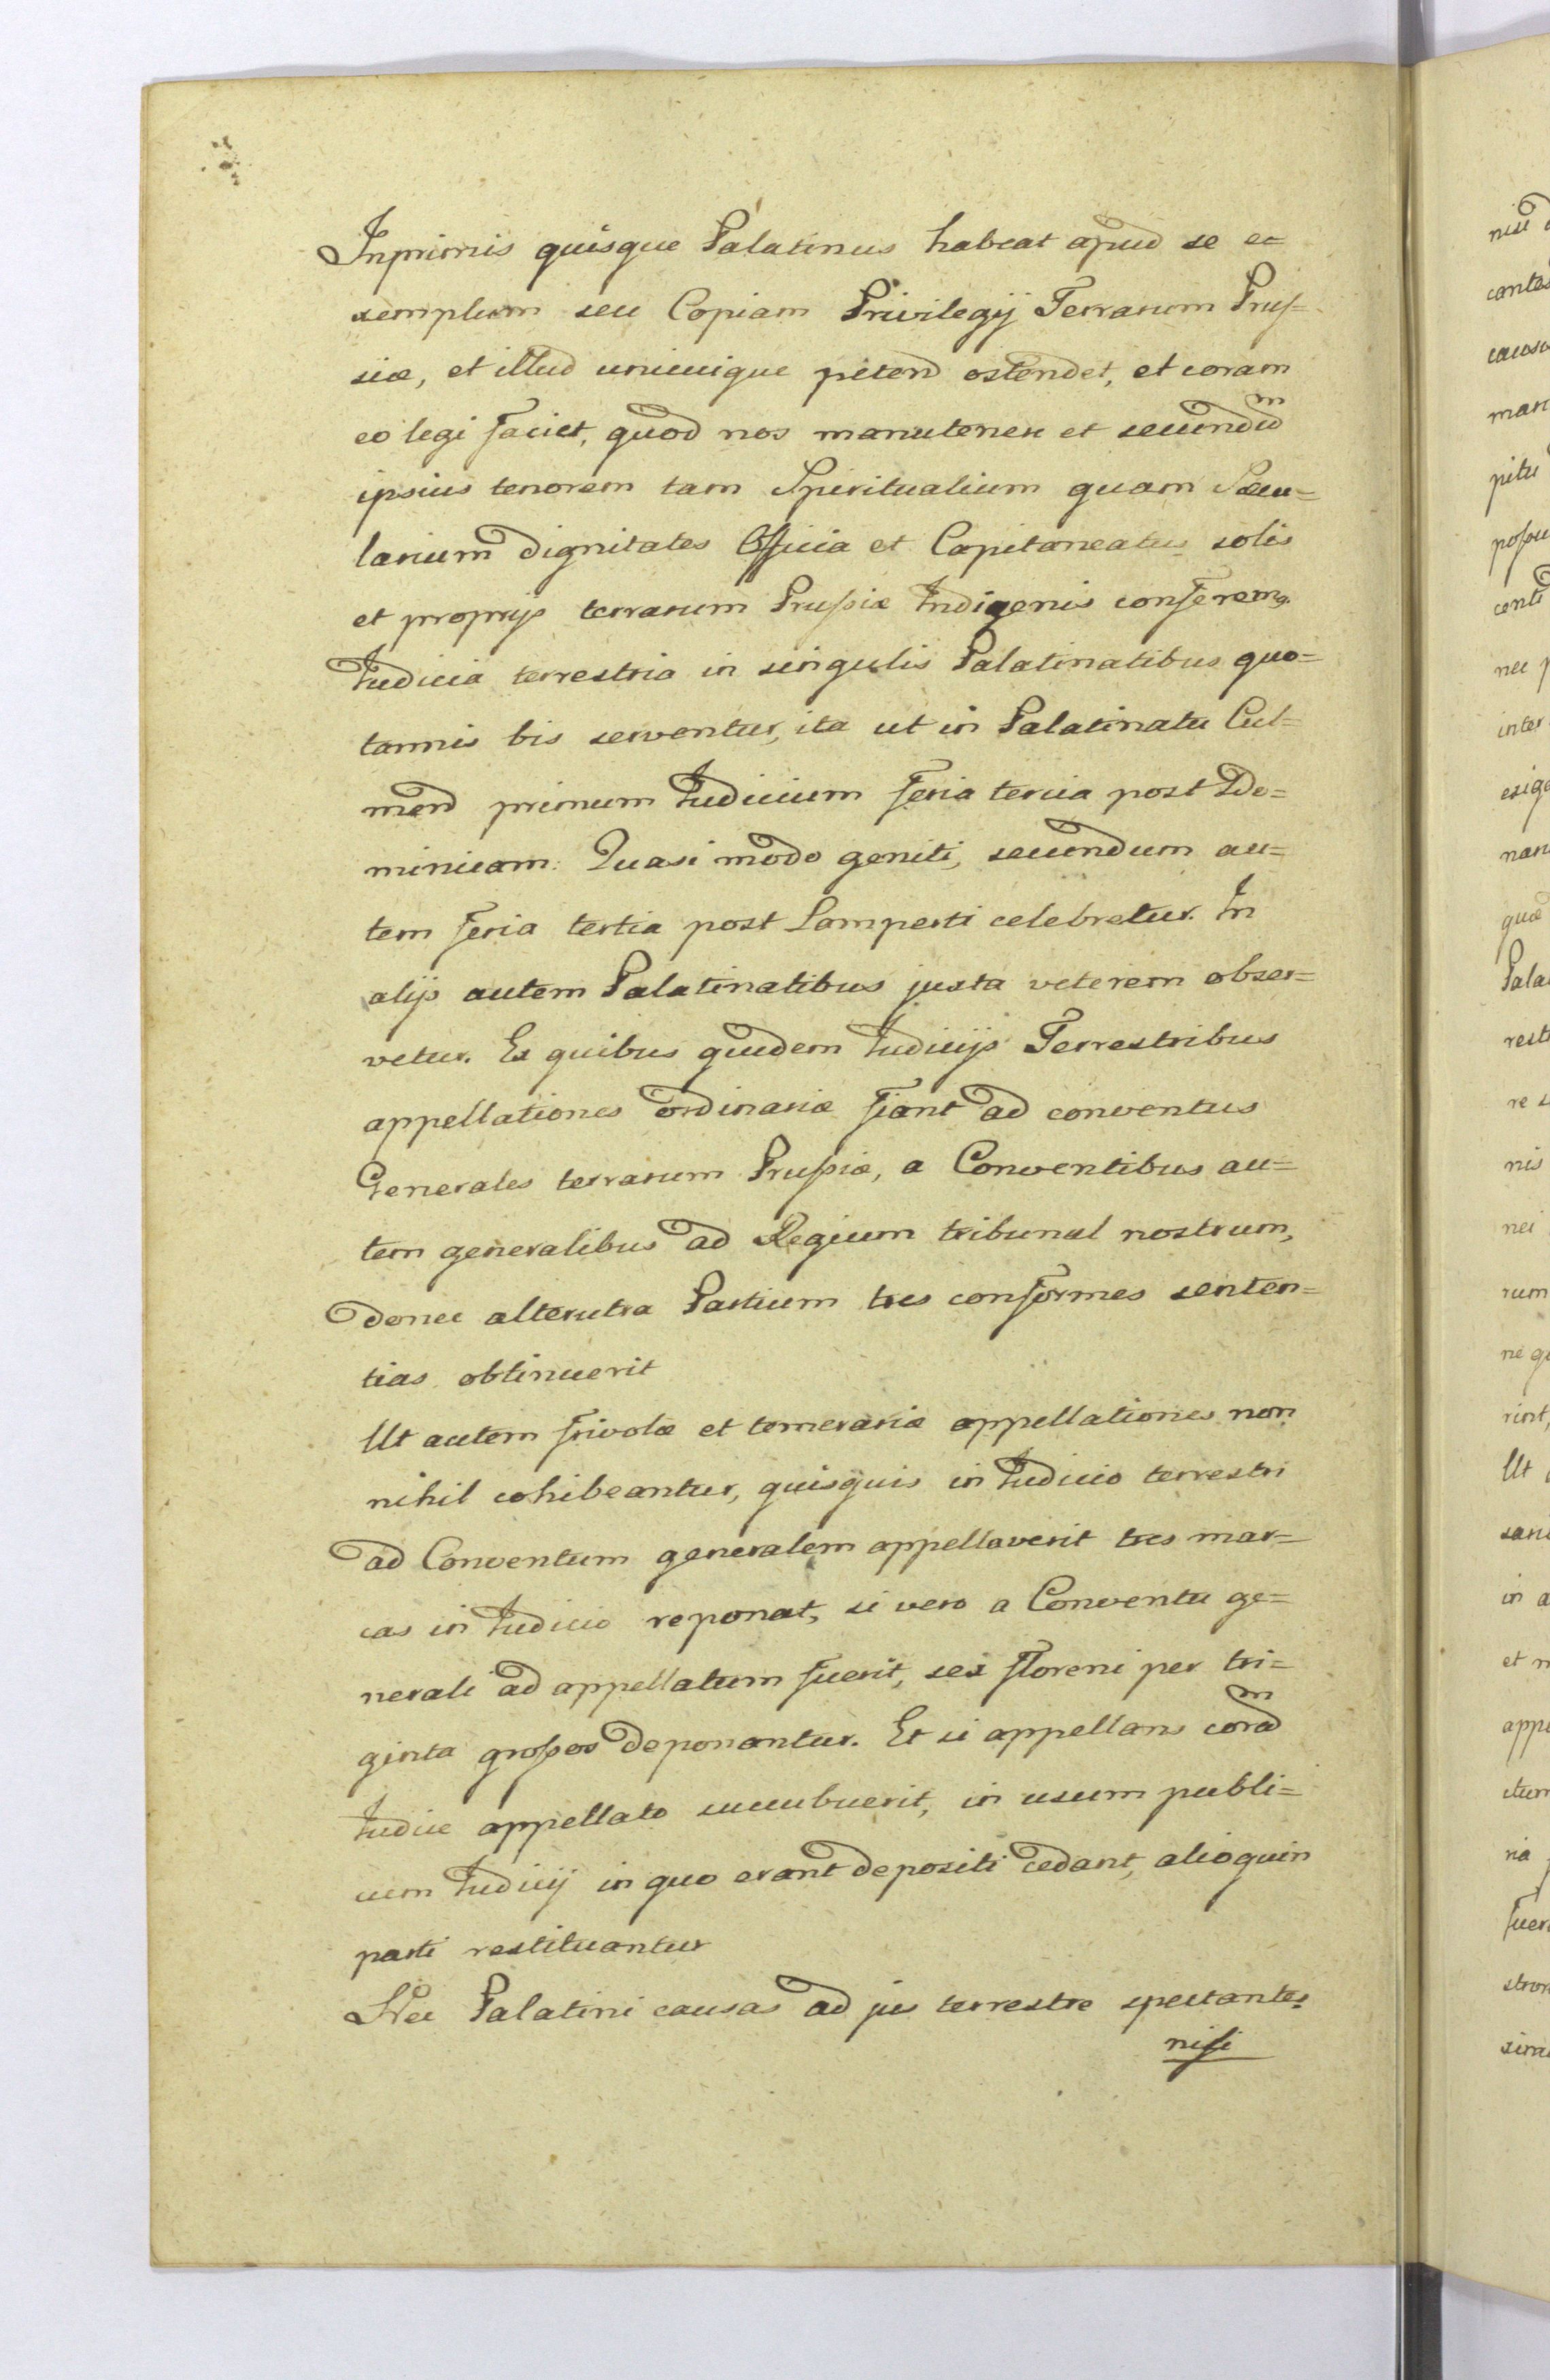 Inprimis quisque Palatinus habeat apud se ec=
xemplum seu Copiam Privilegÿ Terrarum Pruſ=
siæ, et illud unicuique petend ostendet, et coram
eo legi faciet, quod nos manutenere et secundũ
ipsius tenorem tam Spiritualium quam Sæcu=
larium dignitates Officia et Capitaneatus solis
et proprijs terrarum Prußiæ Indigenis conferemq.
Iudicia terrestria in singulis Palatinatibus quo=
tannis bis serventur, ita ut in Palatinatu Cul=
mend primum Iudicium feria tercia post Do=
minicam. Quasi modo geniti, secundum au=
tem feria tertia post Lamperti celebretur. In
alijs autem Palatinatibus juxta veterem obser=
vetur. Ex quibus quidem Iudicijs Terrestribus
appellationes ordinariæ fiant ad conventus
Generales terrarum Prußiæ, a Conventibus au=
tem generalibus ad Regium tribunal nostrum,
donec alterutra Partium tres conformes senten=
tias obtinuerit
Ut autem frivolæ et temerariæ appellationes non
nihil cohibeantur, quisquis in Iudicio terrestri
ad Conventum generalem appellaverit tres mar=
cas in Iudicio reponat, si vero a Conventu ge=
nerali ad appellatum fuerit, sex floreni per tri=
ginta großos deponantur. Et si appellans coram
Iudice appellato succubuerit, in usum publi=
cum Iudicij in quo erant depositi cedant, alioquin
parti restituantur
Nec Palatini causas ad jus terrestre spectantes
niſi